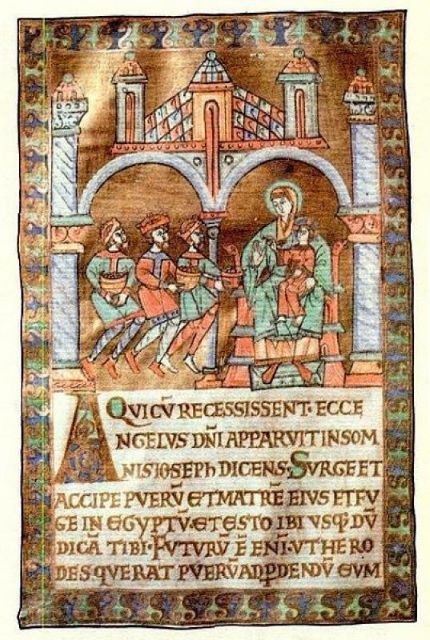 QVICV̄ RECESSISSENT· ECCE
ANGELVS DN̄I APPARVIT INSOM
NIS IOSEPH DICENS· SVRGE ET
ACCIPE PVERV̄ ET MATRĒ EIVS ET FV
GE IN EGYPTV̄· ET ESTO IBI VSQ DV̄
DICĀ TIBI· FVTVRV̄ Ē ENI· VT HERO
DES QVERAT PVERV̄ AD PDENDV̄ EVM